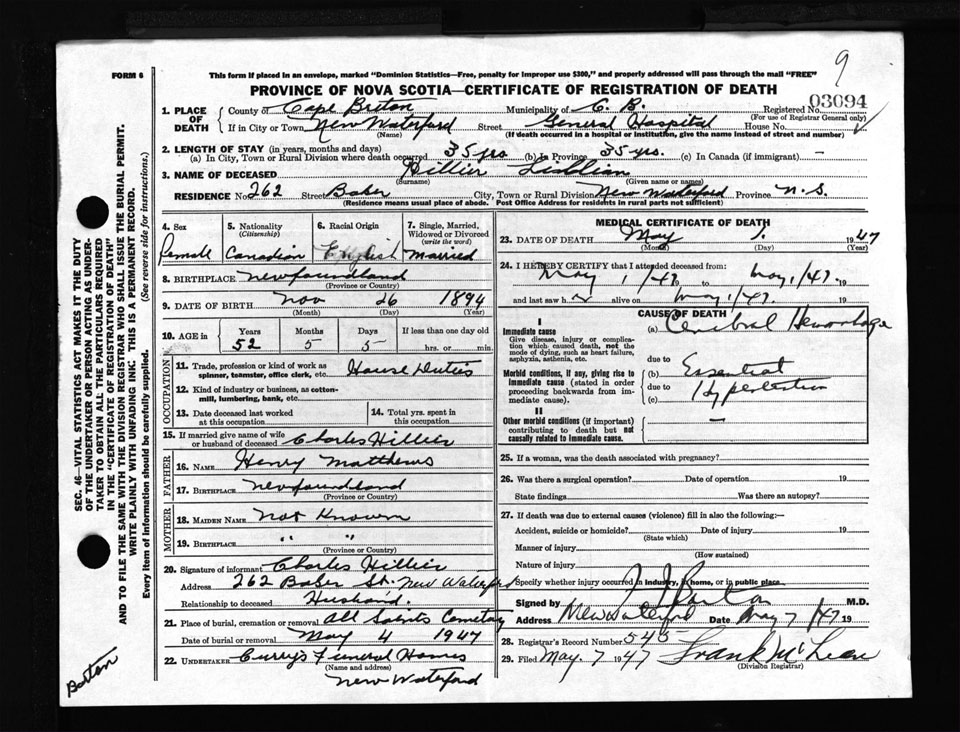 9
FORM 6
This form if placed in an envelope, marked "Dominion Statistics—Free, penalty for improper use $300," and properly addressed will pass through the mail "FREE"
PROVINCE OF NOVA SCOTIA—CERTIFICATE OF REGISTRATION OF DEATH
03094
1. PLACE OF DEATH County of Cape Breton Municipality of C. B. Registered No.
(For use of Registrar General only)
If in City or Town New Waterford Street General Hospital House No.
(Name) (If death occurred in a hospital or institution, give the name instead of street and number)
2. LENGTH OF STAY (in years, months and days)
(a) In City, Town or Rural Division where death occurred 35 yrs (b) In Province 35 yrs. (c) In Canada (if immigrant) —
3. NAME OF DECEASED Hillier Lisblian
(Surname) (Given name or names)
RESIDENCE No. 262 Street Baker City, Town or Rural Division New Waterford Province N. S.
(Residence means usual place of abode. Post Office Address for residents in rural parts not sufficient)
4. Sex 5. Nationality (Citizenship) 6. Racial Origin 7. Single, Married, Widowed or Divorced (write the word)
Female Canadian English Married
8. BIRTHPLACE Newfoundland
(Province or Country)
9. DATE OF BIRTH Nov 26 1894
(Month) (Day) (Year)
10. AGE in Years Months Days If less than one day old
52 5 5 hrs. or min.
OCCUPATION
11. Trade, profession or kind of work as spinner, teamster, office clerk, etc. House Duties
12. Kind of industry or business, as cotton-mill, lumbering, bank, etc.
13. Date deceased last worked at this occupation
14. Total yrs. spent in this occupation
15. If married give name of wife or husband of deceased Charles Hillier
FATHER
16. NAME Henry Matthews
17. BIRTHPLACE Newfoundland
(Province or Country)
MOTHER
18. MAIDEN NAME Not Known
19. BIRTHPLACE " "
(Province or Country)
20. Signature of informant Charles Hillier
Address 262 Baker St. New Waterford
Relationship to deceased Husband.
21. Place of burial, cremation or removal All Saints Cemetary
Date of burial or removal May 4 1947
22. UNDERTAKER Curry's Funeral Homes
(Name and address)
New Waterford
MEDICAL CERTIFICATE OF DEATH
23. DATE OF DEATH May 1. 1947
(Month) (Day) (Year)
24. I HEREBY CERTIFY that I attended deceased from:
May 1/47 to May 1/47. 19
and last saw h er alive on May 1/47. 19
CAUSE OF DEATH
I
Immediate cause (a) Cerebral Hemorrhage
Give disease, injury or complication which caused death, not the mode of dying, such as heart failure, asphyxia, asthenia, etc.
due to
Morbid conditions, if any, giving rise to immediate cause (stated in order proceeding backwards from immediate cause).
(b) Essential
due to
(c) Hypertension
II
Other morbid conditions (if important) contributing to death but not causally related to immediate cause. —
25. If a woman, was the death associated with pregnancy?
26. Was there a surgical operation? Date of operation 19
State findings Was there an autopsy?
27. If death was due to external causes (violence) fill in also the following:—
Accident, suicide or homicide? Date of injury 19
(State which)
Manner of injury
(How sustained)
Nature of injury
Specify whether injury occurred in industry, home, or in public place
Signed by J J Barton M.D.
Address New Waterford Date May 7 /47 19
28. Registrar's Record Number 545
29. Filed May. 7 1947 Frank McLean
(Division Registrar)
SEC. 46—VITAL STATISTICS ACT MAKES IT THE DUTY
OF THE UNDERTAKER OR PERSON ACTING AS UNDER-
TAKER TO OBTAIN ALL THE PARTICULARS REQUIRED
IN THE "CERTIFICATE OF REGISTRATION OF DEATH"
AND TO FILE THE SAME WITH THE DIVISION REGISTRAR WHO SHALL ISSUE THE BURIAL PERMIT.
WRITE PLAINLY WITH UNFADING INK: THIS IS A PERMANENT RECORD.
Every item of information should be carefully supplied. (See reverse side for instructions.)
Barton